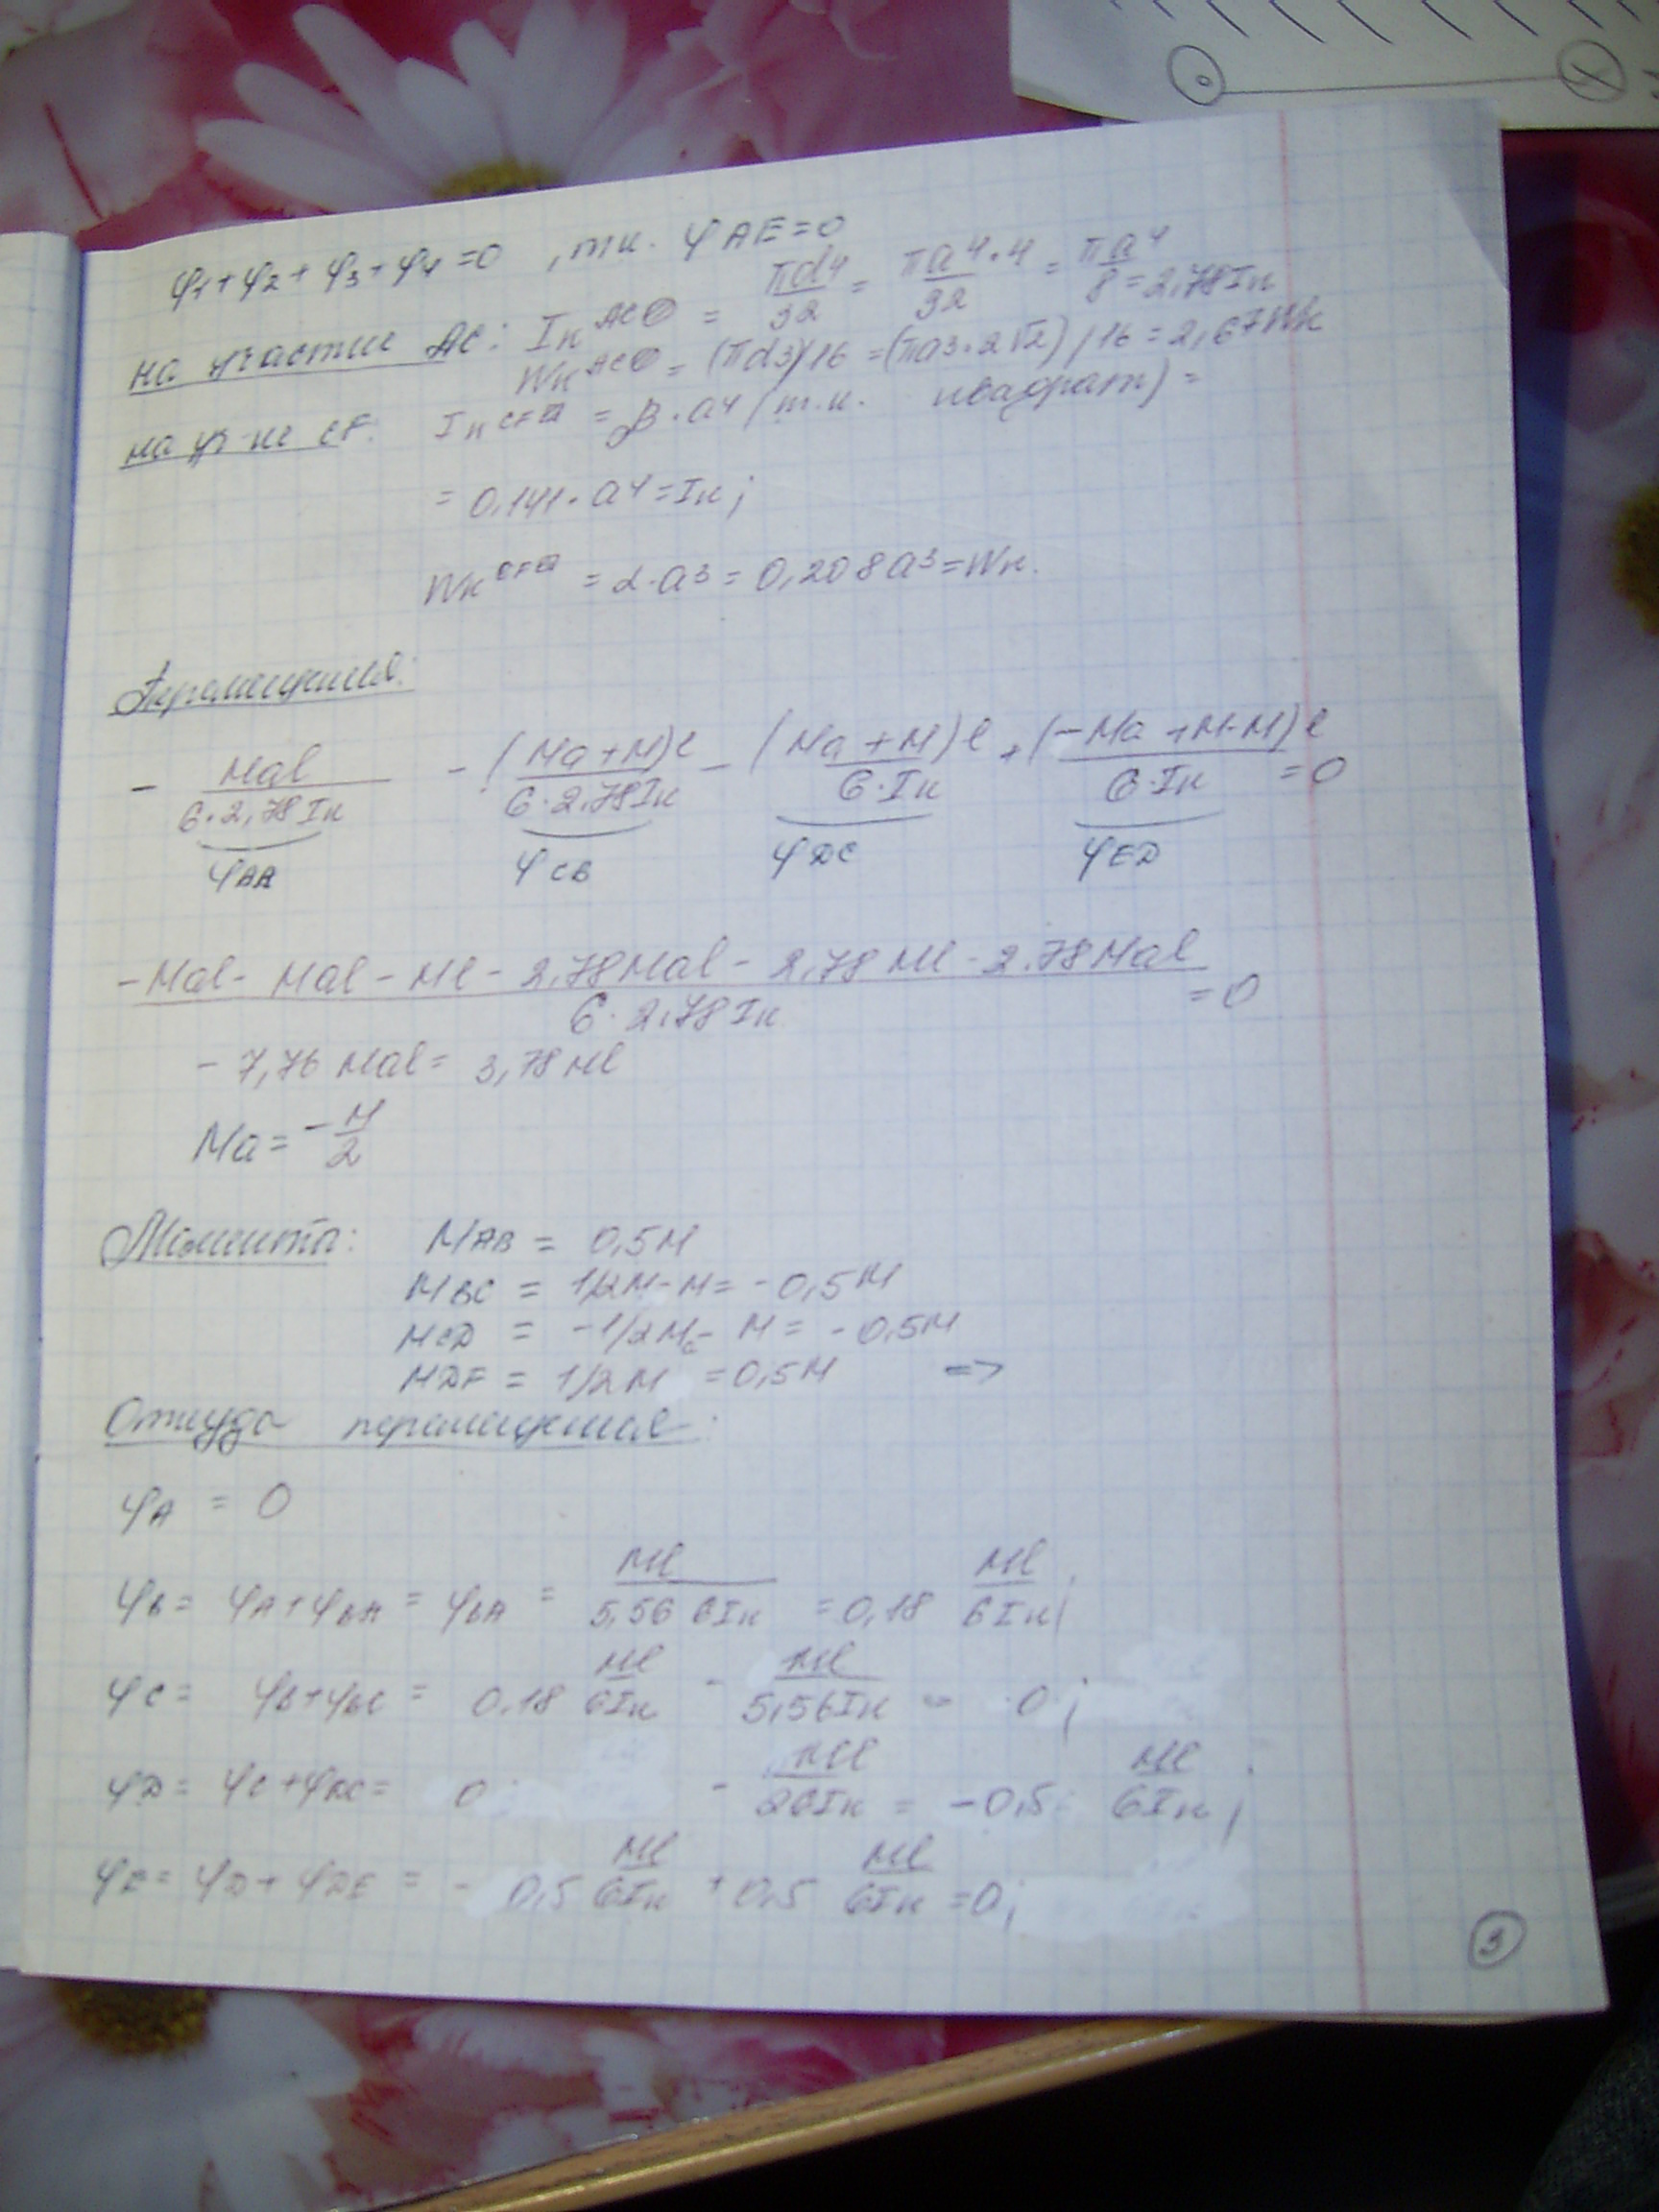 φ1+φ2+φ3+φ4=0, т.к. φAE=0
на участке AC: Iк^AC = πd4/32 = πa4·4/32 = πa4/8 = 2,78Iк
Wк^AC = (πd3)/16 = (πa3·2√2)/16 = 2,67Wк
на уч-ке CF: Iк^CF = β·a4 (т.к. квадрат) =
= 0,141·a4=Iк;
Wк^CF = α·a3 = 0,208a3=Wк.
Перемещения:
- Mal/G·2,78Iк - (Ma+M)l/G·2,78Iк - (Ma+M)l/G·Iк + (-Ma+M-M)l/G·Iк =0
φBA φCB φDC φED
-Mal - Mal - Ml - 2,78Mal - 2,78Ml - 2.78Mal/G·2,78Iк =0
- 7,76 Mal = 3,78Ml
Ma = -M/2
Моменты: MAB = 0,5M
MBC = 1/2M-M= -0,5M
MCD = -1/2M - M = -0,5M
MDF = 1/2M =0,5M =>
Откуда перемещения:
φA = 0
φB = φA+φBA = φBA = Ml/5,56 GIк =0,18 Ml/GIк;
φC = φB+φBC = 0.18 Ml/GIк - Ml/5,5GIк = 0;
φD = φC+φDC = 0 - Ml/2GIк = -0,5 Ml/GIк;
φE = φD+φDE = -0,5 Ml/GIк + 0,5 Ml/GIк =0;
3